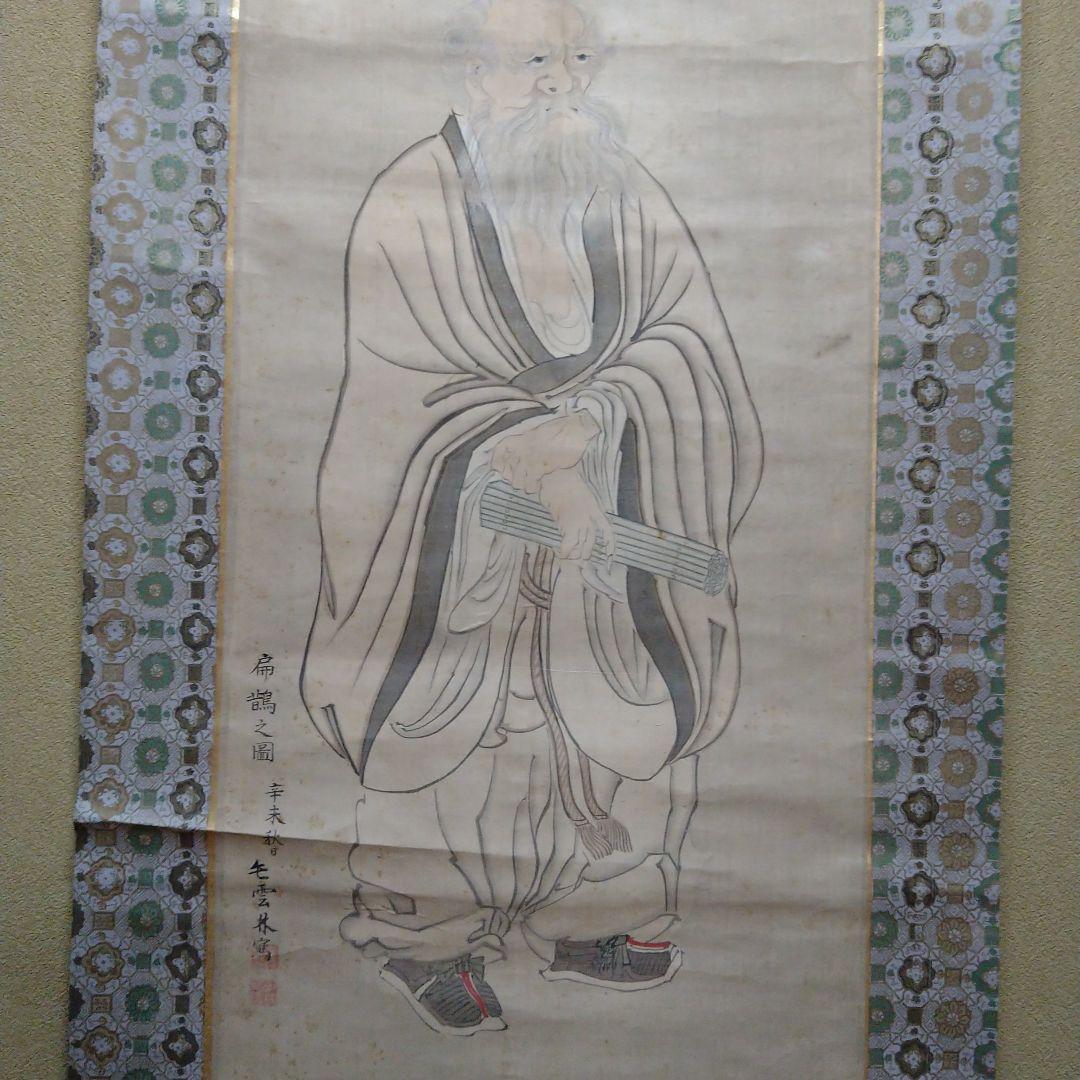 扁鵲之圖
辛未秋日
雲林寫